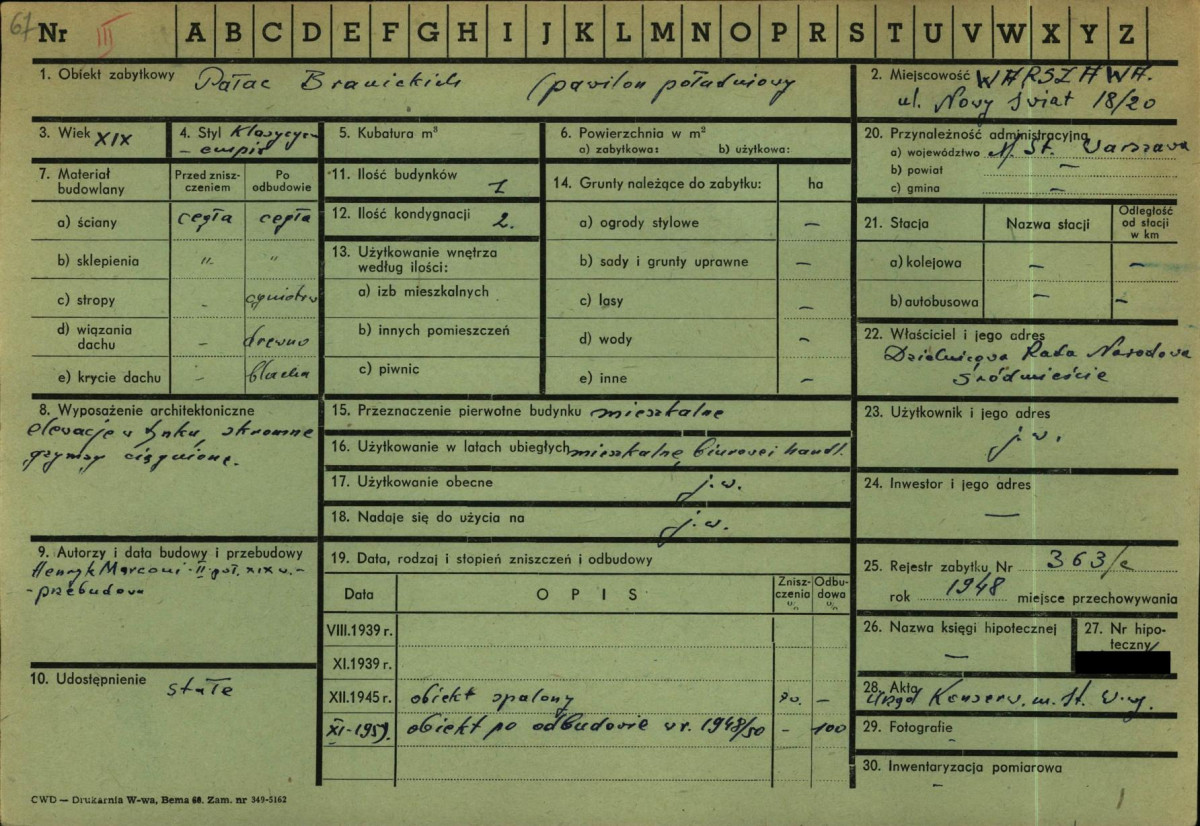 67 Nr III A B C D E F G H I J K L M N O P R S T U V W X Y Z
1. Obiekt zabytkowy Pałac Branickich (pawilon południowy
2. Miejscowość WARSZAWA.
ul. Nowy Świat 18/20
3. Wiek XIX
4. Styl Klasycyzm
- empir
5. Kubatura m³
6. Powierzchnia w m²
a) zabytkowa: b) użytkowa:
20. Przynależność administracyjna
a) województwo M. St. Warszawa
b) powiat –
c) gmina –
7. Materiał budowlany
Przed zniszczeniem
Po odbudowie
a) ściany cegła cegła
b) sklepienia " "
c) stropy -
d) wiązania dachu - drewno
e) krycie dachu - blacha
11. Ilość budynków 1
12. Ilość kondygnacji 2.
13. Użytkowanie wnętrza według ilości:
a) izb mieszkalnych
b) innych pomieszczeń
c) piwnic
14. Grunty należące do zabytku: ha
a) ogrody stylowe –
b) sady i grunty uprawne –
c) lasy –
d) wody –
e) inne –
21. Stacja Nazwa stacji Odległość od stacji w km
a) kolejowa – –
b) autobusowa – –
22. Właściciel i jego adres
Dzielnicowa Rada Narodowa
Śródmieście
8. Wyposażenie architektoniczne
elewacje w tynku, skromne
gzymsy ciągnione.
15. Przeznaczenie pierwotne budynku mieszkalne
16. Użytkowanie w latach ubiegłych mieszkalne, biurowe i handl.
17. Użytkowanie obecne j.w.
18. Nadaje się do użycia na j.w.
23. Użytkownik i jego adres
j.w.
24. Inwestor i jego adres
—
9. Autorzy i data budowy i przebudowy
Henryk Marconi - II poł. XIX w. -
- przebudowa
19. Data, rodzaj i stopień zniszczeń i odbudowy
Data OPIS Zniszczenia % Odbudowa %
VIII.1939 r.
XI.1939 r.
XII.1945 r. obiekt spalony –
XI-1959. obiekt po odbudowie w r. 1948/50 - 100
25. Rejestr zabytku Nr 363/
rok 1948 miejsce przechowywania
26. Nazwa księgi hipotecznej
–
27. Nr hipoteczny
10. Udostępnienie stałe
28. Akta
Urząd Konserw. m. St. W-wy.
29. Fotografie
–
30. Inwentaryzacja pomiarowa
–
CWD — Drukarnia W-wa, Bema 60. Zam. nr 349-5162
1